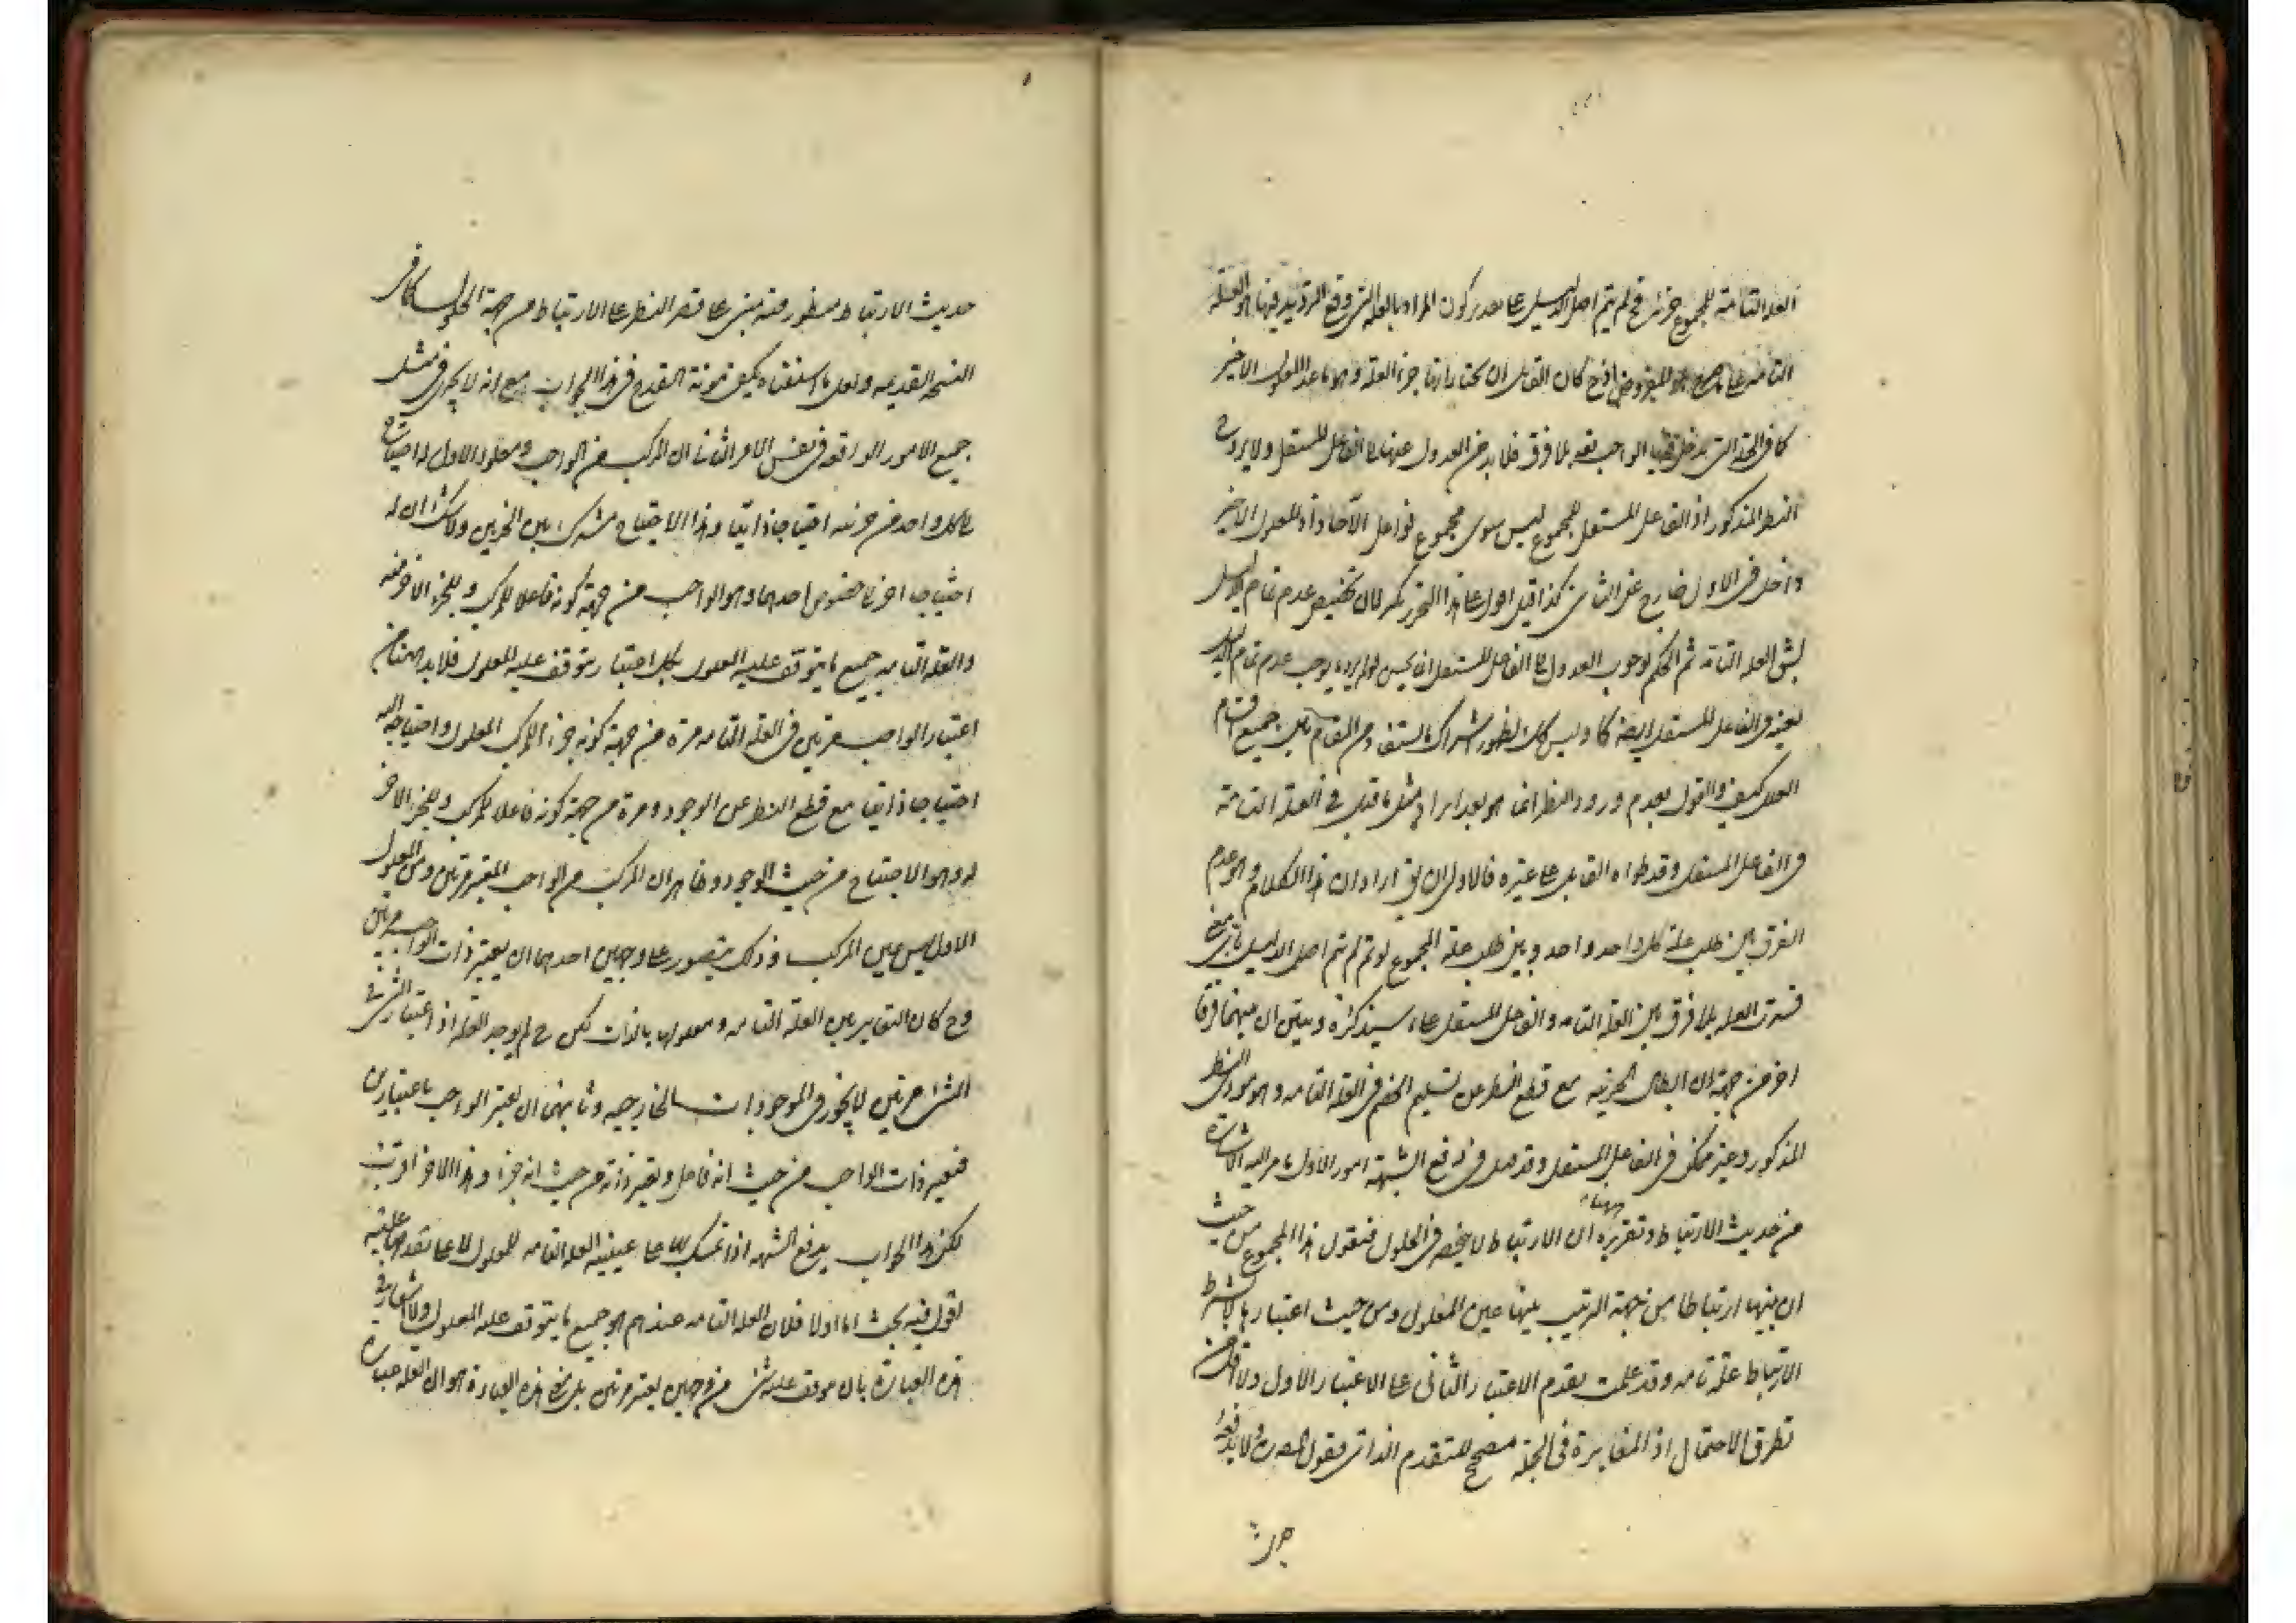 العلة التامة للمجموع جزئه فح لم يتم اصل الدليل على تقدير كون المراد بالعلة التى وقع الترديد فيها هو العلة
التامة على ما هو المفروض اذ ح كان القائل ان يختار انها جزء العلة وهو ما عدا المعلول الاخير
كما فى الجملة التى يدخل فيها الواجب بعينه بلا فرق فلا بد من العدول عنها الى الفاعل المستقل ولا يرد ح
النظر المذكور اذ الفاعل المستقل للمجموع ليس سوى مجموع فواعل الآحاد اذ المعلول الاخير
داخل فى الاول خارج عن الثانى كذا قيل اقول على هذا التحرير كان تخصيص عدم تمام الدليل
بشق العلة التامة ثم الحكم بوجوب العدول الى الفاعل المستقل انما يحسن لو لم يرد ما يوجب عدم تمام الدليل
بعينه فى الفاعل المستقل ايضا كما وليس كذلك لظهور اشتراك ما استفاد من المقام بين جميع اقسام
العلل كيف والقول بعدم ورود النظر انما هو بعد ايراد مثل ما قيل فى العلة التامة
فى الفاعل المستقل وقد طواه القائل على غيره فالاولى ان يق اراد ان هذا الكلام وهو عدم
الفرق بين طلب علة كل واحد واحد وبين طلب علة المجموع لو تم لم يتم اصل الدليل باى معنى
فسرت العلة بلا فرق بين العلة التامة والفاعل المستقل على ما سيذكره وبين ان بينهما فرقا
اخر من جهة ان ابطال الجزئية مع قطع النظر من تسليم الخصم فى العلة التامة وهو مورد النظر
المذكور وغير ممكن فى الفاعل المستقل وقد قيل فى دفع الشبهة امور الاول ما مر اليه الاشارة
من حديث الارتباط وتقريره ههنا ان الارتباط لا ينحصر فى الحلول فنقول هذا المجموع من حيث
ان بينها ارتباطا من جهة الترتيب بينها عين المعلول ومن حيث اعتبارها لا بشرط
الارتباط علة تامة وقد علمت تقدم الاعتبار الثانى على الاعتبار الاول ولا اقل من
تطرق الاحتمال اذ المغايرة فى الجملة مصحح للتقدم الذاتى فقول المصره ولا يدفعه
حديث
حديث الارتباط منظور فيه مبنى على قصر النظر على الارتباط من جهة الحلول كما فى
النسخة القديمة ولعل ما استفتاه يكفى مؤنة القدح فى هذا الجواب مع انه لا يجرى فى مثل
جميع الامور الواقعة فى نفس الامر الثانى ان المركب من الواجب ومعلوله الاول له احتياج
الى كل واحد من جزئيه احتياجا ذاتيا وهذا الاحتياج مشترك بين الجزئين ولا شك ان له
احتياجا اخر الى خصوص احدهما وهو الواجب من جهة كونه فاعلا للمركب وللجزء الاخر منه
والعلة التامة جميع ما يتوقف عليه المعلول بكل اعتبار يتوقف عليه المعلول فلا بد ههنا من
اعتبار الواجب مرتين فى العلة التامة مرة من جهة كونه جزء المركب المعلول واحتياجه اليه
احتياجا ذاتيا مع قطع النظر عن الوجود ومرة من جهة كونه فاعلا للمركب وللجزء الاخر
له وهو الاحتياج من حيث الوجود وظاهر ان المركب من الواجب المعتبر مرتين ومن المعلول
الاول ليس عين المركب وذلك يتصور على وجهين احدهما ان يعتبر ذات الواجب مرتين
وح كان التغاير بين العلة التامة ومعلولها بالذات لكن ح لم يوجد العلة اذ اعتبار الشئ فى
الشئ مرتين لا يجوز فى الموجودات الخارجية وثانيهما ان يعتبر الواجب باعتبارين
فيعتبر ذات الواجب من حيث انه فاعل ويعتبر ذاته من حيث انه جزء وهذا الاخر اقرب
لكن هذا الجواب يدفع الشبهة اذا تمسك بها على عينية العلة التامة للمعلول لا على تقدمها عليه
اقول فيه بحث اما اولا فلان العلة التامة عندهم هو جميع ما يتوقف عليه المعلول ولا اشعار فى
هذه العبارة بان موقوف عليه شئ من وجهين يعتبر مرتين بل مع هذه العبارة هو ان العلة عبارة